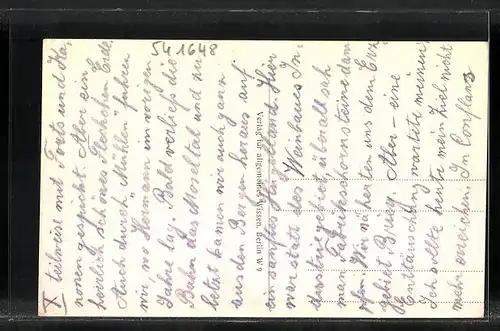 541648
X teilweise mit Forts und Ka-
nonen gespickt. Aber ein
herrlich schönes Fleckchen Erde.
Auch durch "Mühlen" fuhren
wir, wo Hermann im vorigen
Jahre lag. Bald verließ die
Bahn das Moseltal und zu-
letzt kamen wir auch ganz
aus den Bergen heraus auf
ein sanftes Hügelland. Hier
war statt des Weinbaues In-
dustriegebiet, überall sah
man Fabrikschornsteine dam-
pfen. Wir näherten uns dem Erz-
gebiet Briey. Aber – eine
Enttäuschung wartete meiner.
Ich sollte heute mein Ziel nicht
mehr erreichen. In Conflans
Verlag für allgemeines Wissen, Berlin W 9